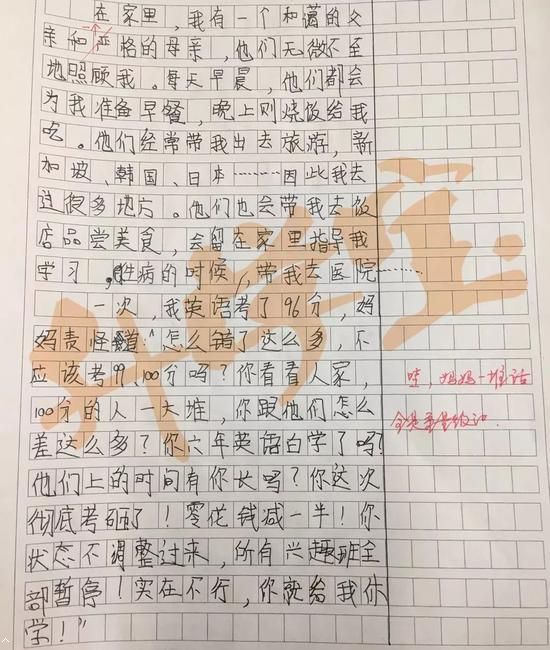 在家里，我有一个和蔼的父
亲和一严格的母亲，他们无微不至
地照顾我。每天早晨，他们都会
为我准备早餐，晚上则烧饭给我
吃。他们经常带我出去旅游，新
加坡、韩国、日本………因此我去
过很多地方。他们也会带我去饭
店品尝美食，会留在家里指导我
学习，生病的时候，带我去医院……
一次，我英语考了96分，妈
妈责怪道："怎么错了这么多，不
应该考99、100分吗？你看看人家，
100分的人一大堆，你跟他们怎么
差这么多？你六年英语白学了吗？
他们上的时间有你长吗？你这次
彻底考砸了！零花钱减一半！你
状态不调整过来，所有兴趣班全
部暂停！实在不行，你就给我休
学！"
哇，妈妈一堆话
全是
升学宝